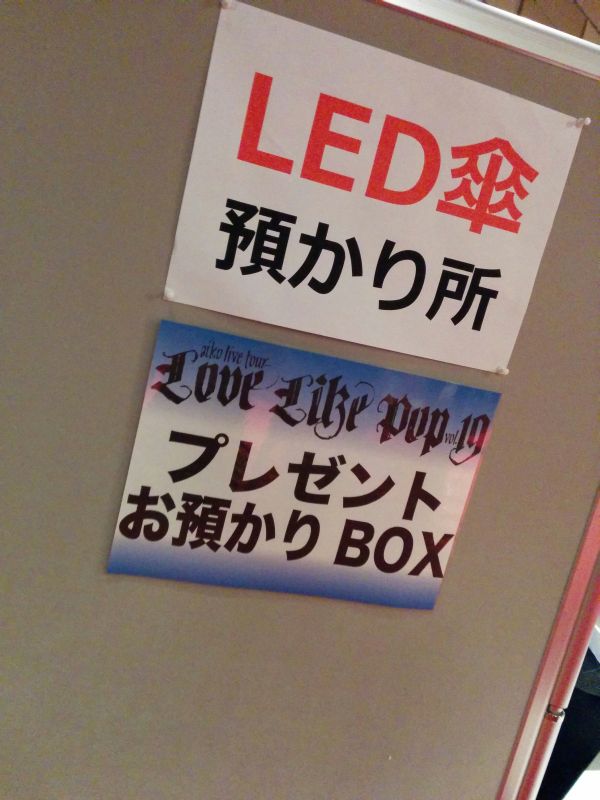 LED傘
預かり所
aiko live tour
Love Like Pop vol.19
プレゼント
お預かりBOX